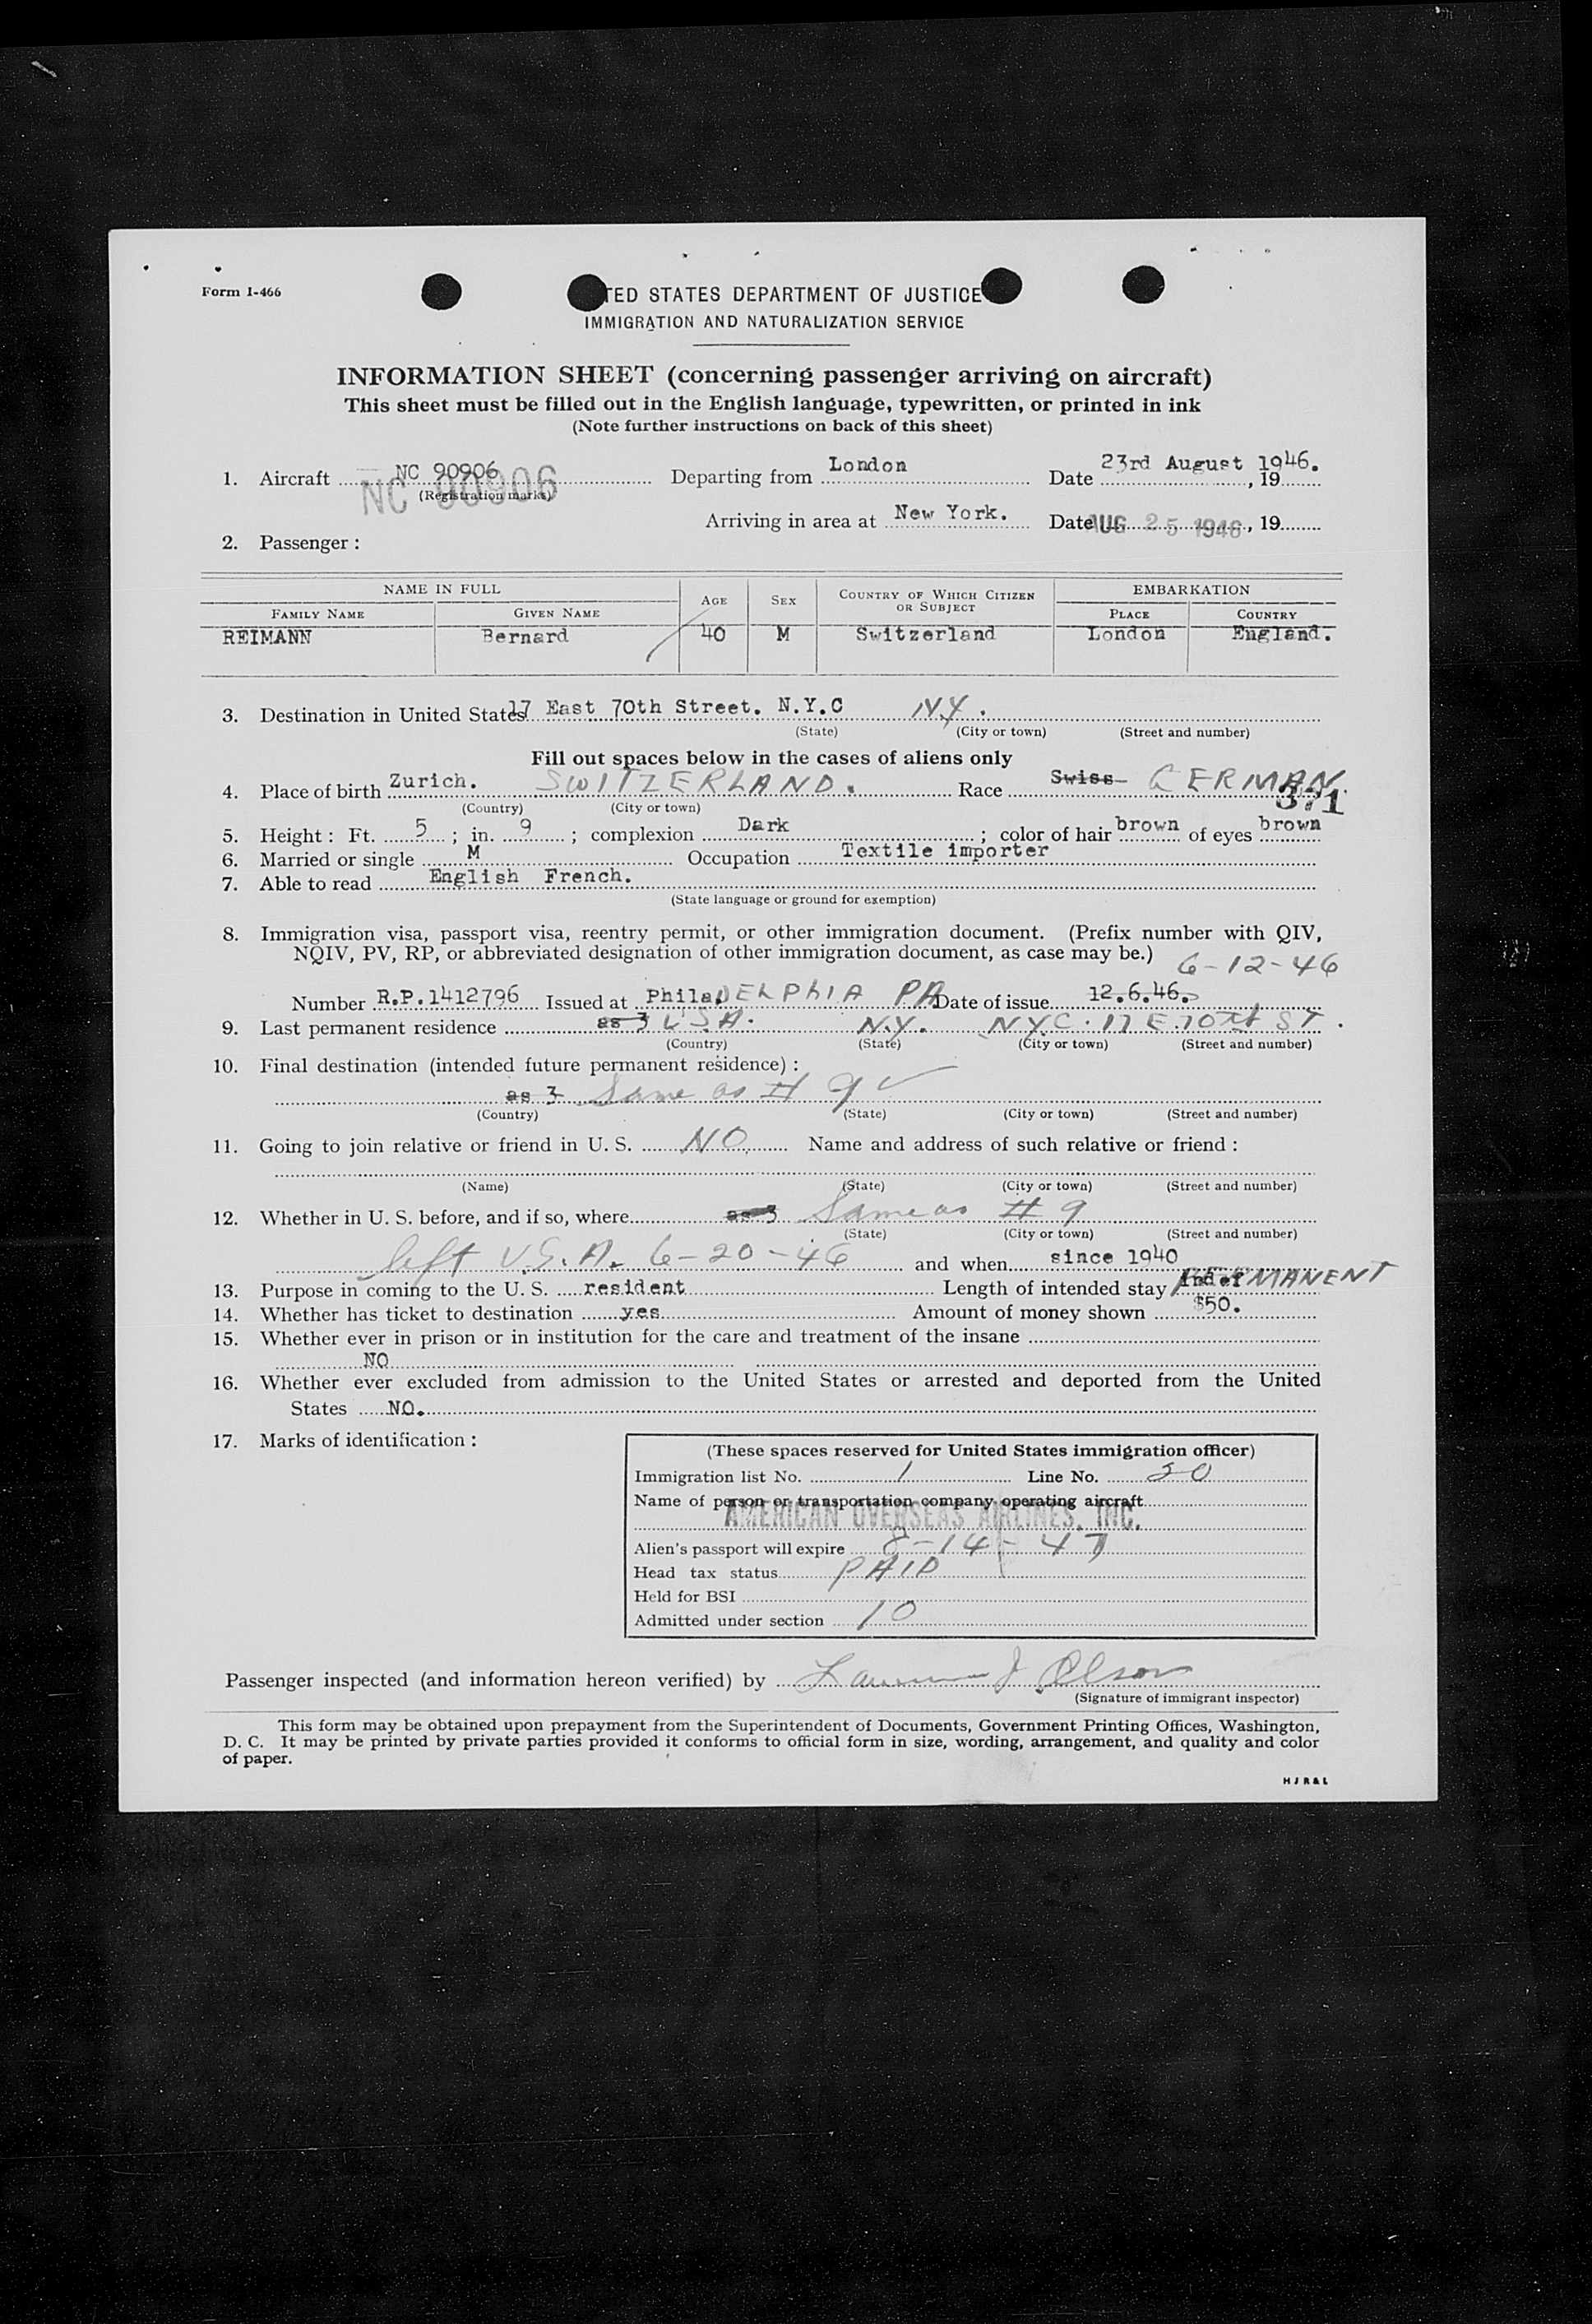 Form I-466
TED STATES DEPARTMENT OF JUSTICE
IMMIGRATION AND NATURALIZATION SERVICE
INFORMATION SHEET (concerning passenger arriving on aircraft)
This sheet must be filled out in the English language, typewritten, or printed in ink
(Note further instructions on back of this sheet)
1. Aircraft NC 90906 NC 90906 Departing from London Date 23rd August 1946. , 19
(Registration marks)
Arriving in area at New York. Date AUG 25 1946 , 19
2. Passenger :
NAME IN FULL AGE SEX COUNTRY OF WHICH CITIZEN OR SUBJECT EMBARKATION
FAMILY NAME GIVEN NAME PLACE COUNTRY
REIMANN Bernard 40 M Switzerland London England.
3. Destination in United States 17 East 70th Street. N.Y.C N.Y.
(State) (City or town) (Street and number)
Fill out spaces below in the cases of aliens only
4. Place of birth Zurich. SWITZERLAND. Race Swiss GERMAN
(Country) (City or town) 371
5. Height : Ft. 5 ; in. 9 ; complexion Dark ; color of hair brown of eyes brown
6. Married or single M Occupation Textile importer
7. Able to read English French.
(State language or ground for exemption)
8. Immigration visa, passport visa, reentry permit, or other immigration document. (Prefix number with QIV,
NQIV, PV, RP, or abbreviated designation of other immigration document, as case may be.)
6-12-46
Number R.P.1412796 Issued at Phila.DELPHIA PA Date of issue 12.6.46.
9. Last permanent residence as 3 USA. N.Y. NYC. 17 E. 70th ST.
(Country) (State) (City or town) (Street and number)
10. Final destination (intended future permanent residence) :
as 3 Same as # 9
(Country) (State) (City or town) (Street and number)
11. Going to join relative or friend in U. S. NO Name and address of such relative or friend :
(Name) (State) (City or town) (Street and number)
12. Whether in U. S. before, and if so, where as 3 Same as # 9
(State) (City or town) (Street and number)
left U.S.A. 6-20-46 and when since 1940
13. Purpose in coming to the U. S. resident Length of intended stay indef PERMANENT
14. Whether has ticket to destination yes Amount of money shown $50.
15. Whether ever in prison or in institution for the care and treatment of the insane
NO
16. Whether ever excluded from admission to the United States or arrested and deported from the United
States NO.
17. Marks of identification :
(These spaces reserved for United States immigration officer)
Immigration list No. 1 Line No. 20
Name of person or transportation company operating aircraft
AMERICAN OVERSEAS AIRLINES, INC.
Alien's passport will expire 8-14-47
Head tax status PAID
Held for BSI
Admitted under section 10
Passenger inspected (and information hereon verified) by J. Olson
(Signature of immigrant inspector)
This form may be obtained upon prepayment from the Superintendent of Documents, Government Printing Offices, Washington,
D. C. It may be printed by private parties provided it conforms to official form in size, wording, arrangement, and quality and color
of paper.
HJR&L